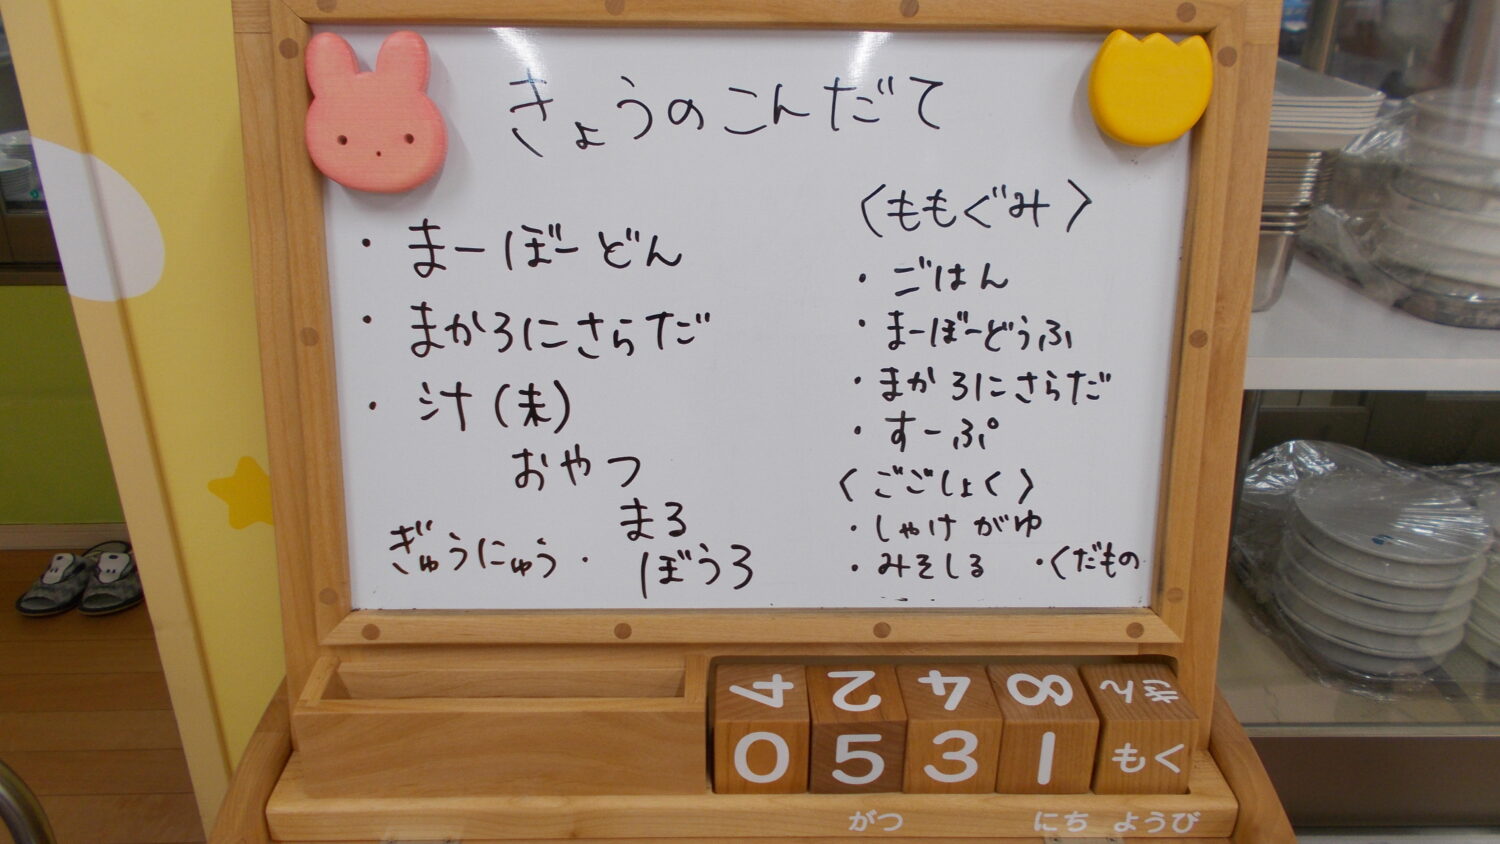 きょうのこんだて
・まーぼーどん
・まかろにさらだ
・汁(未)
おやつ
ぎゅうにゅう・まるぼうろ
〈ももぐみ〉
・ごはん
・まーぼーどうふ
・まかろにさらだ
・すーぷ
〈ごごしょく〉
・しゃけがゆ
・みそしる ・くだもの
4 2 4 8 きん
0 5 3 1 もく
がつ にち ようび